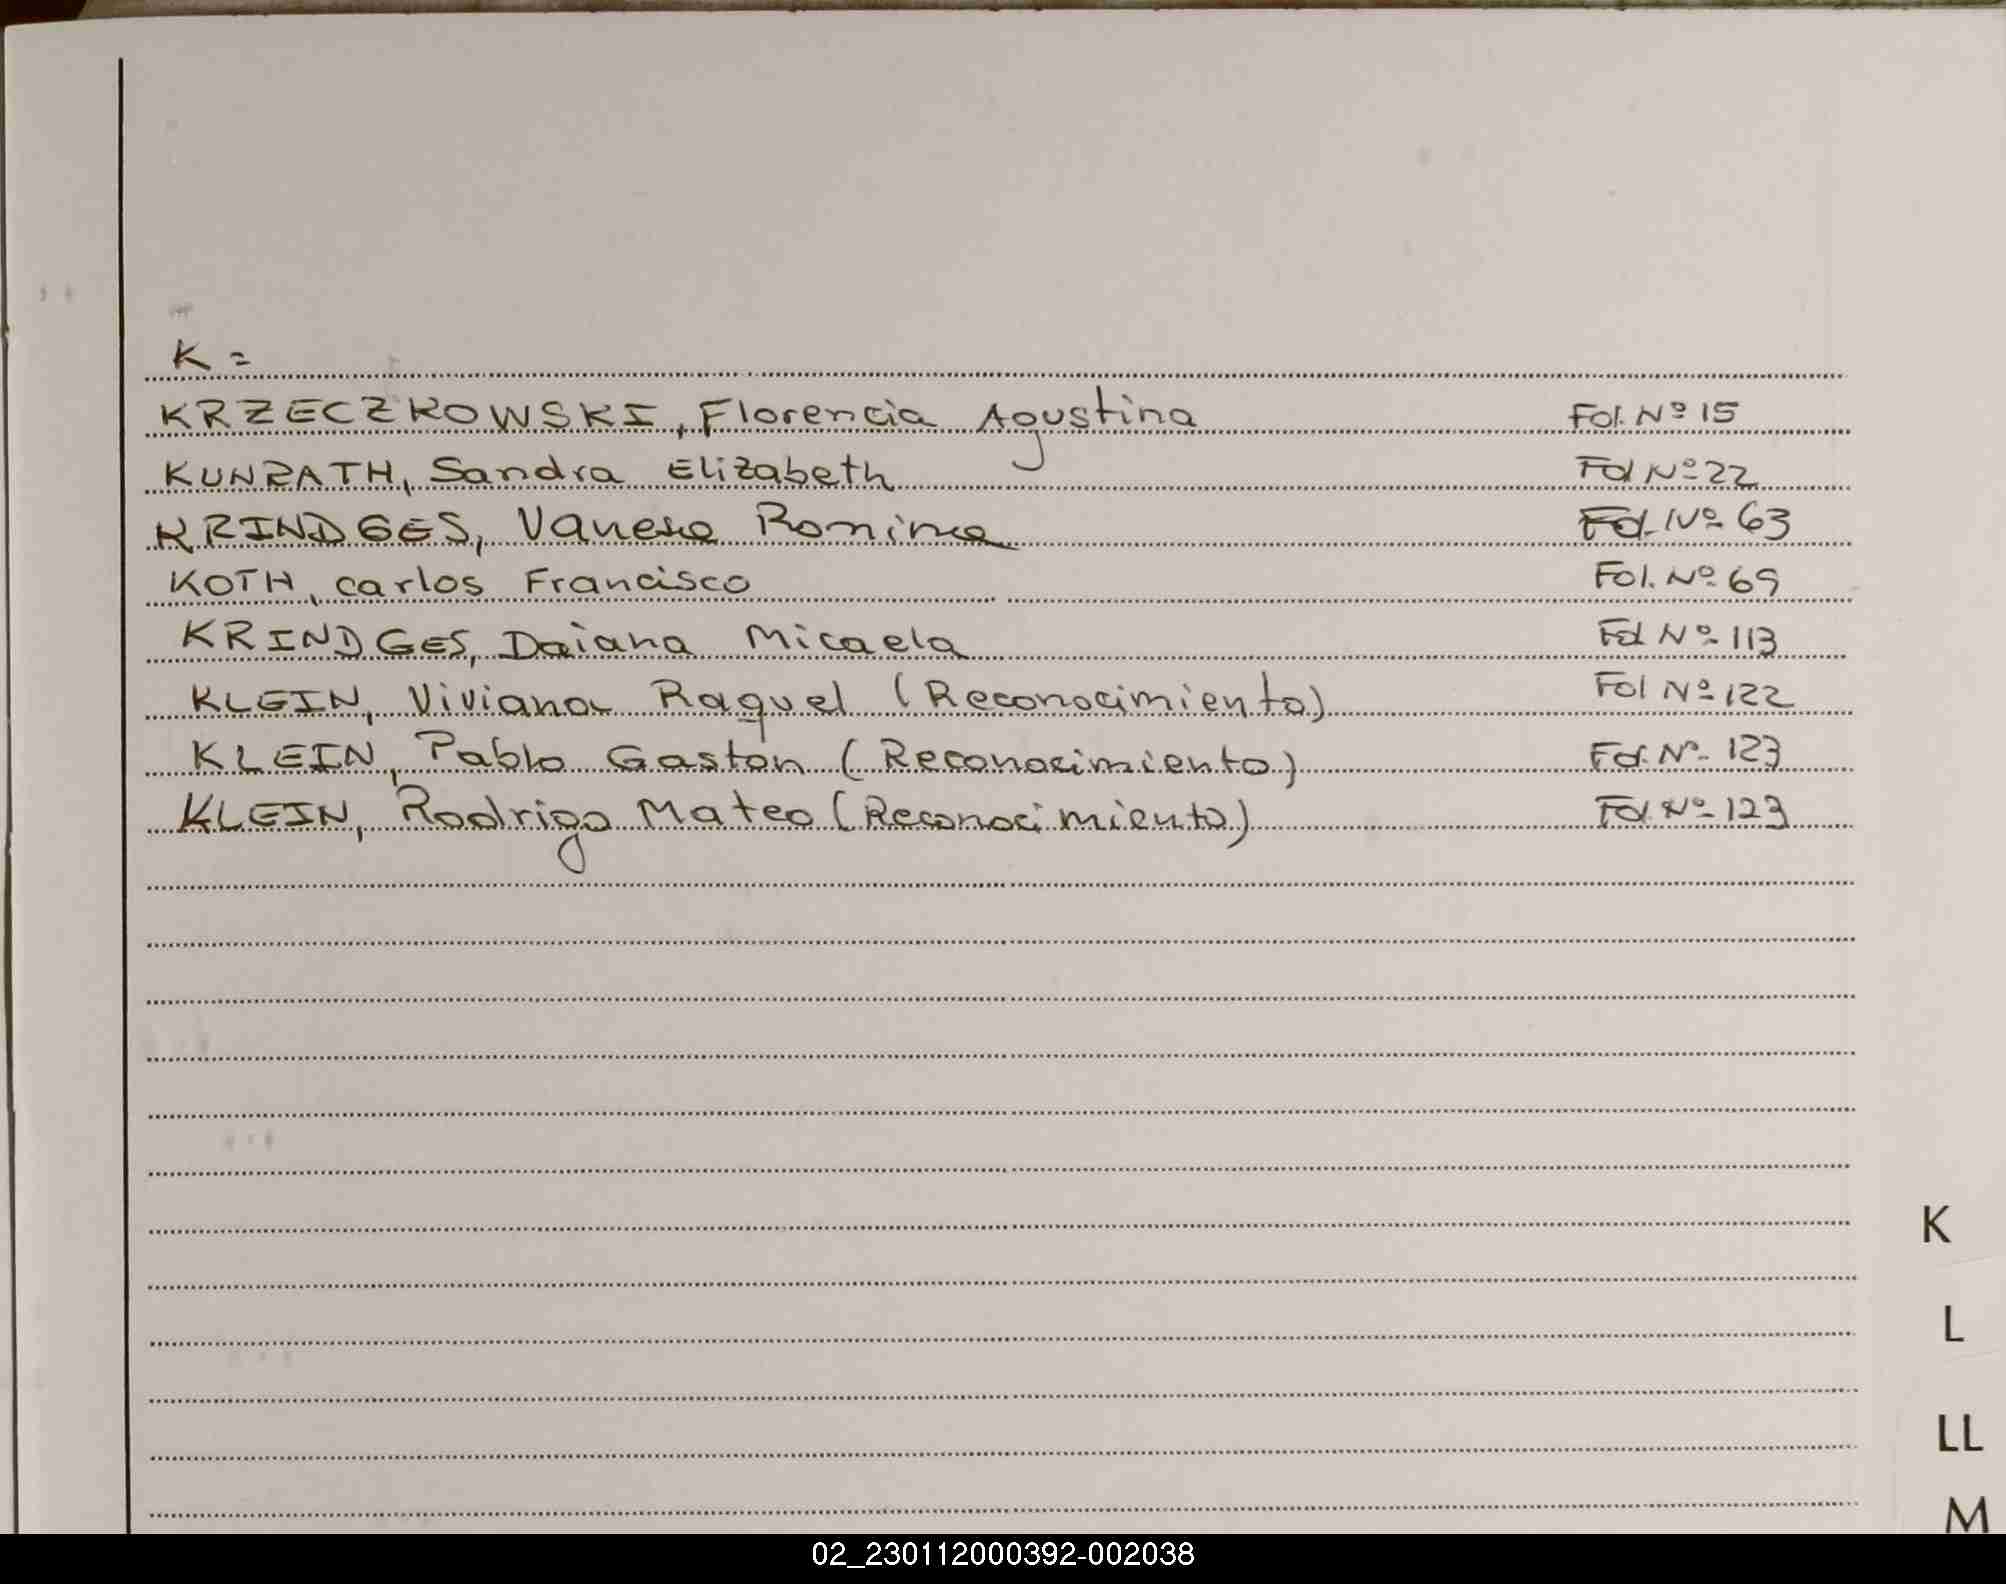 K =
KRZECZKOWSKI, Florencia Agustina Fol. Nº 15
KUNRATH, Sandra Elizabeth Fol Nº 22
KRINDGES, Vanesa Romina Fol. Nº 63
KOTH, Carlos Francisco Fol. Nº 69
KRINDGES, Daiana Micaela Fol Nº 113
KLEIN, Viviana Raquel (Reconocimiento) Fol Nº 122
KLEIN, Pablo Gaston (Reconocimiento) Fol. Nº 123
KLEIN, Rodrigo Mateo (Reconocimiento) Fol. Nº 123
K
L
LL
M
02_230112000392-002038